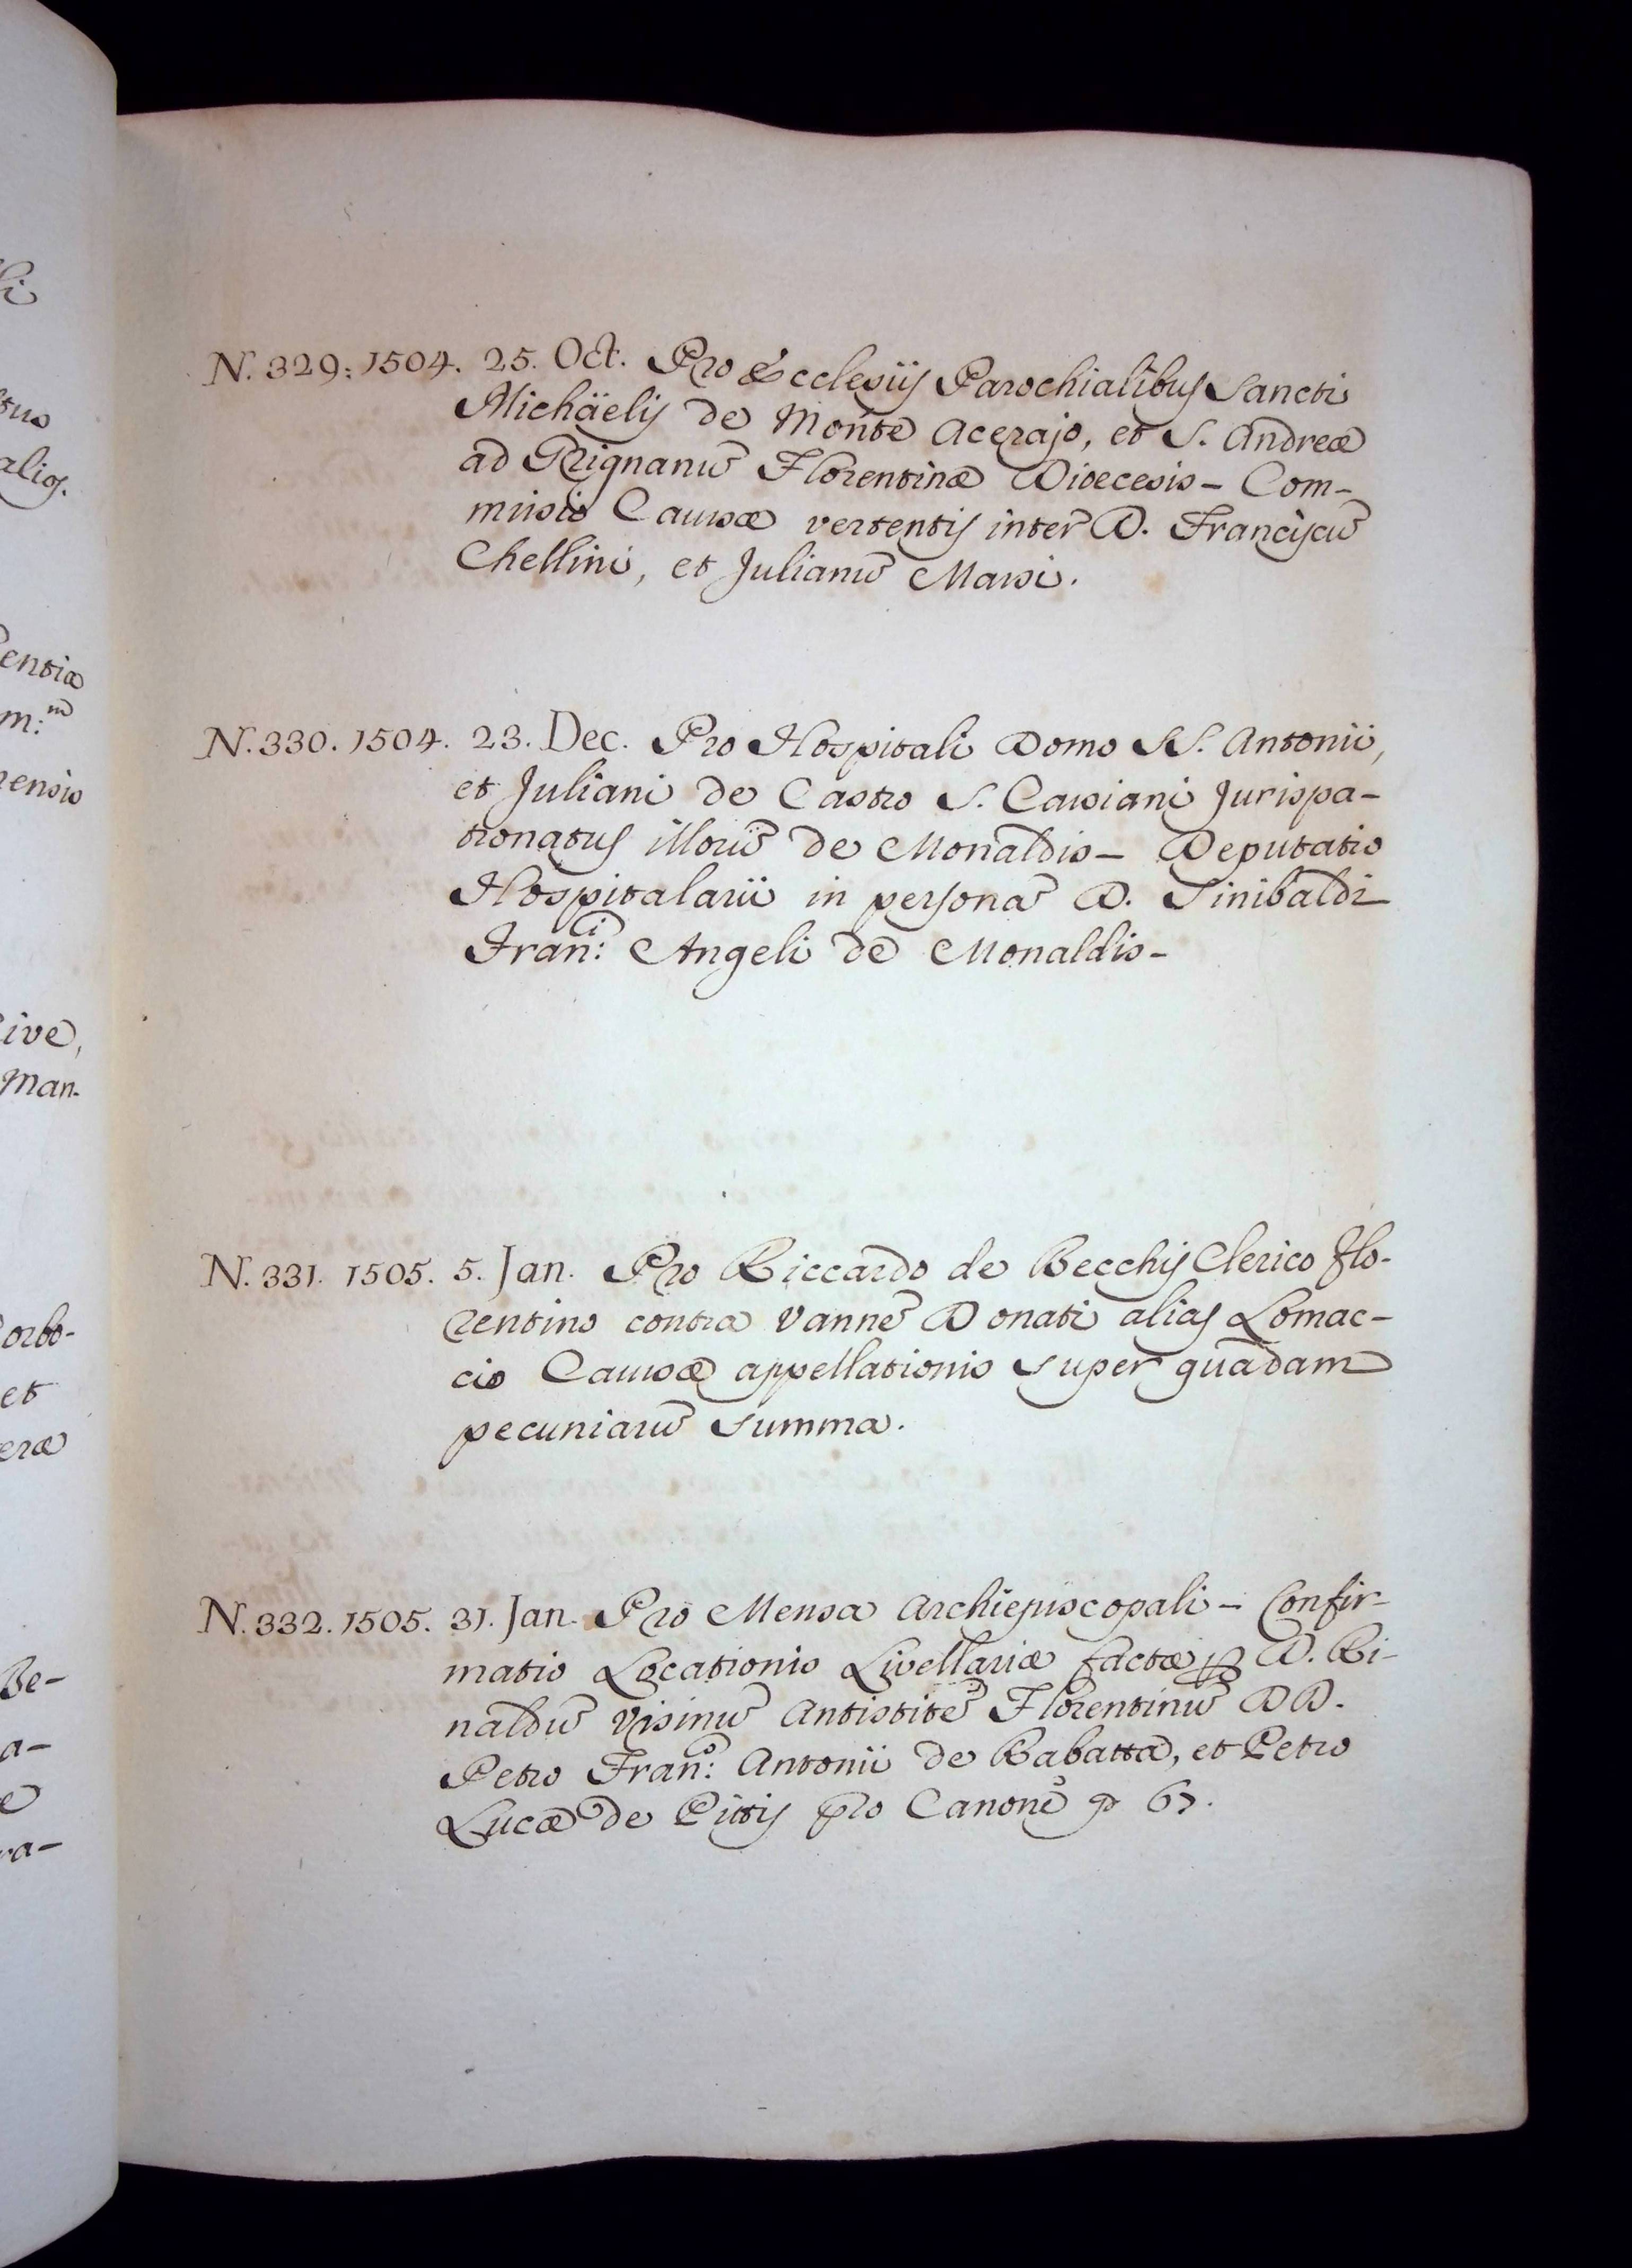 li
stus
alios.
entia
m:m
rensis
ive,
Man-
orbo-
et
eræ
Be-
a-
e
ra-
N. 329. 1504. 25. Oct. Pro Ecclesiis Parochialibus Sancti
Michäelis de Monte Acerajo, et S. Andreæ
ad Rignanũ Florentinæ Diœcesis - Com-
missio Causæ vertentis inter D. Franciscũ
Chellini, et Julianũ Massi.
N. 330. 1504. 23. Dec. Pro Hospitali Domo SS. Antonii,
et Juliani de Castro S. Cassiani Jurispa-
tronatus illorũ de Monaldis - Deputatio
Hospitalarii in personã D. Sinibaldi
Fran:ci Angeli de Monaldis -
N. 331. 1505. 5. Jan. Pro Riccardo de Becchis Clerico Flo-
rentino contra Vannẽ Donati alias Lomac-
cio Causæ appellationis super quadam
pecuniarũ summa.
N. 332. 1505. 31. Jan. Pro Mensa Archiepiscopali - Confir-
matio Locationis Livellariæ factæ p D. Ri-
naldũ Visinũ Antistitẽ Florentinũ DD.
Petro Fran:co Antonii de Rabatta, et Petro
Lucæ de Pittis pro Canone